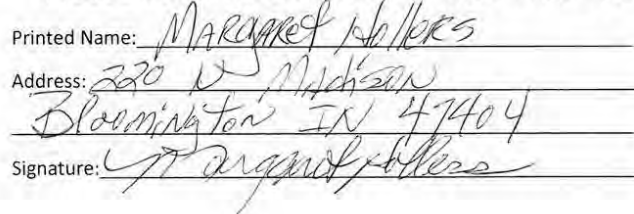 Printed Name: MARGAREt Hollers
Address: 220 N Madison
Bloomington IN 47404
Signature: Margaret Hollers